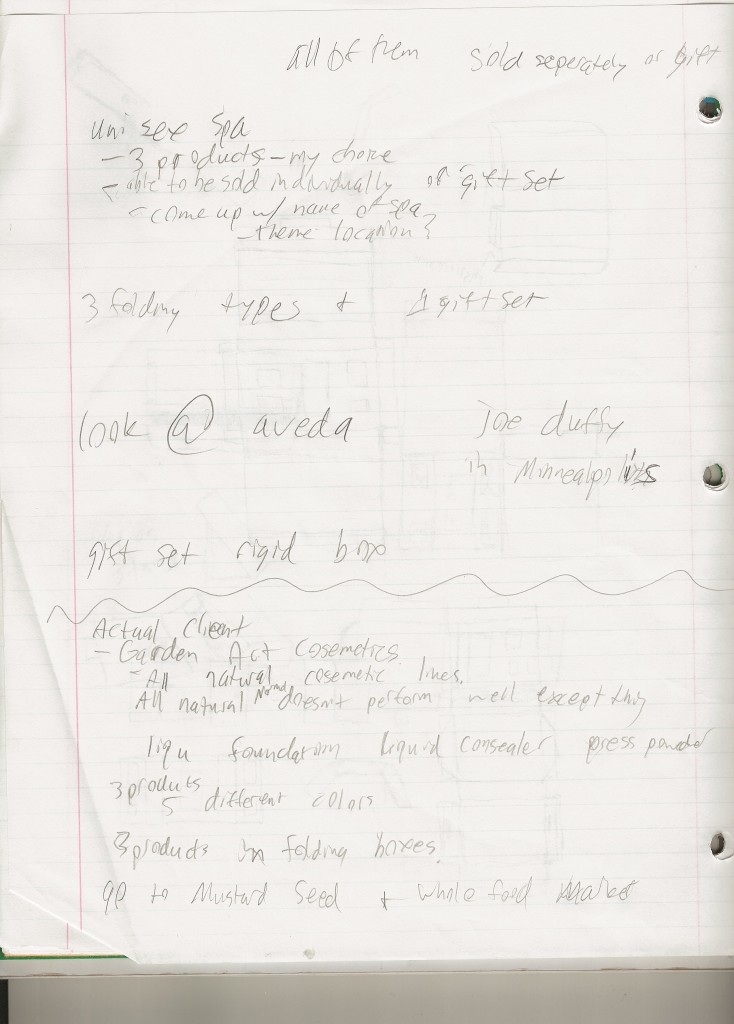 all of them sold seperately or gift
uni sex spa
- 3 products - my choice
- able to be sold individually or gift set
- come up w/ name of spa
- theme location?
3 folding types + 1 gift set
look @ aveda
joe duffy
in Minnealpolis
gift set rigid box
Actual Client
- Garden Act Cosemetics
- All natural cosemetic lines.
All natural Normal doesn't perform well except this
liqu foundation liquid consealer press powder
3 produts
5 different colors
3 products in folding boxes.
go to Mustard Seed + whole food Market